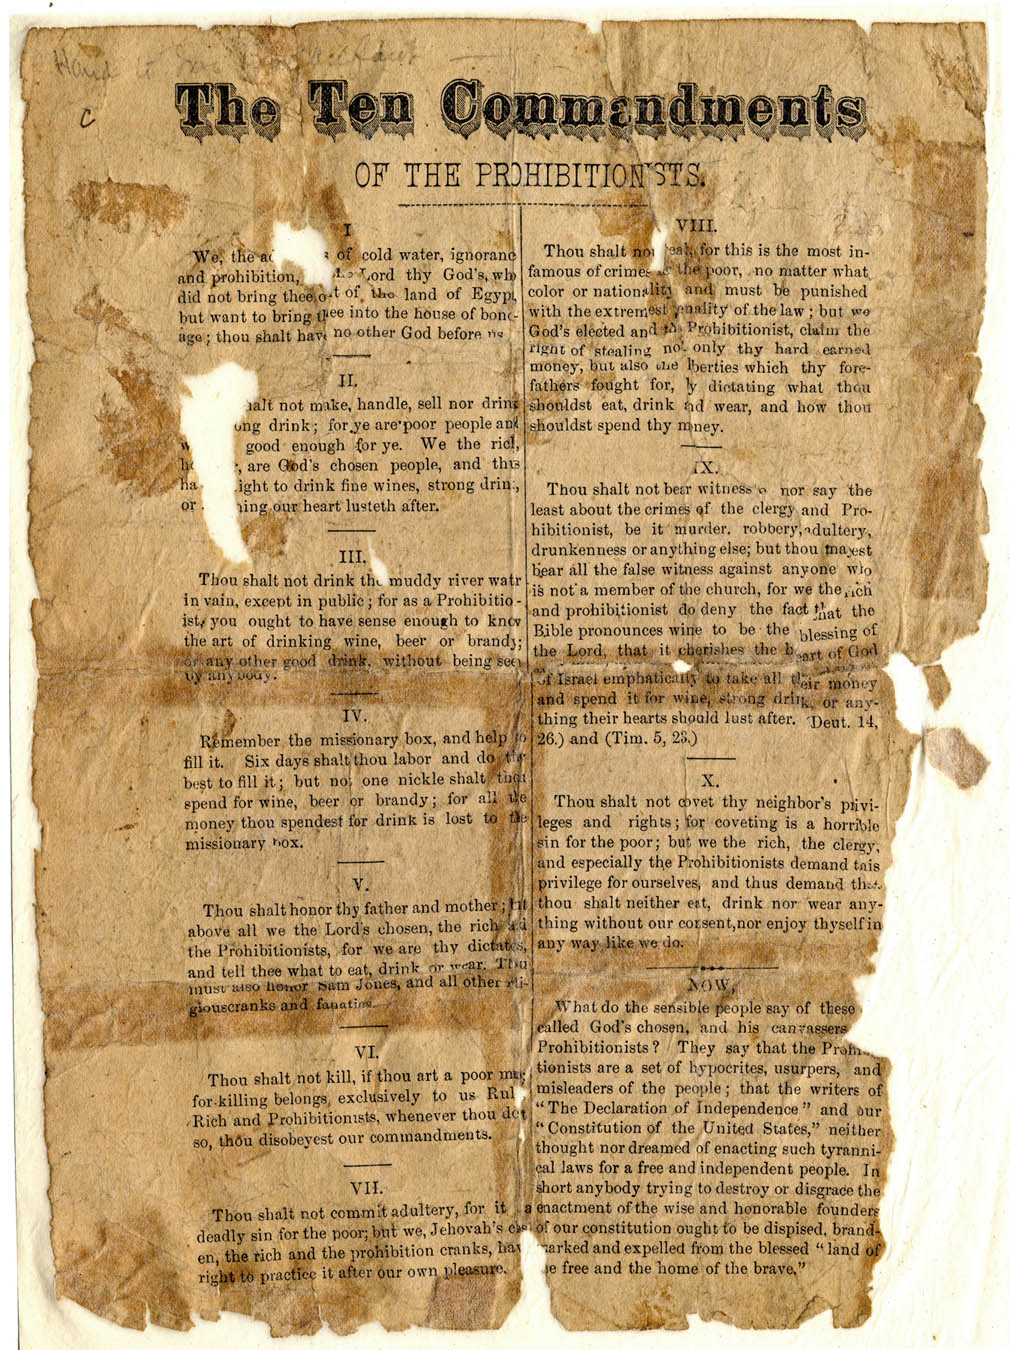 Hand to
C
The Ten Commandments
OF THE PROHIBITIONISTS.
I
We, the of cold water, ignoranc
and prohibition, Lord thy God's, who
did not bring thee out of the land of Egypt,
but want to bring thee into the house of bond-
age; thou shalt have no other God before us
II.
shalt not make, handle, sell nor drink
drink; for ye are poor people and
good enough for ye. We the rich,
are God's chosen people, and thus
right to drink fine wines, strong drink,
or our heart lusteth after.
III.
Thou shalt not drink the muddy river watr
in vain, except in public; for as a Prohibitio-
ist, you ought to have sense enough to know
the art of drinking wine, beer or brandy;
or any other good drink, without being seen
by anybody.
IV.
Remember the missionary box, and help to
fill it. Six days shalt thou labor and do thy
best to fill it; but not one nickle shalt thou
spend for wine, beer or brandy; for all the
money thou spendest for drink is lost to the
missionary box.
V.
Thou shalt honor thy father and mother; but
above all we the Lord's chosen, the rich and
the Prohibitionists, for we are thy dictates,
and tell thee what to eat, drink or wear. Thou
must also honor Sam Jones, and all other reli-
giouscranks and fanatics.
VI.
Thou shalt not kill, if thou art a poor man;
for killing belongs, exclusively to us
Rich and Prohibitionists, whenever thou dost
so, thou disobeyest our commandments.
VII.
Thou shalt not commit adultery, for it a
deadly sin for the poor; but we, Jehovah's chos-
en, the rich and the prohibition cranks, have
right to practice it after our own pleasure.
VIII.
Thou shalt not steal, for this is the most in-
famous of crimes the poor, no matter what
color or nationality and must be punished
with the extremest penality of the law; but we
God's elected and the Prohibitionist, claim the
right of stealing not only thy hard earned
money, but also the liberties which thy fore-
fathers fought for, by dictating what thou
shouldst eat, drink and wear, and how thou
shouldst spend thy money.
IX.
Thou shalt not bear witness nor say the
least about the crimes of the clergy and Pro-
hibitionist, be it murder, robbery, adultery,
drunkenness or anything else; but thou mayest
bear all the false witness against anyone who
is not a member of the church, for we the rich
and prohibitionist do deny the fact that the
Bible pronounces wine to be the blessing of
the Lord, that it cherishes the heart of God
of Israel emphatically to take all their money
and spend it for wine, strong drink, or any-
thing their hearts should lust after. Deut. 14,
26.) and (Tim. 5, 23.)
X.
Thou shalt not covet thy neighbor's privi-
leges and rights; for coveting is a horrible
sin for the poor; but we the rich, the clergy,
and especially the Prohibitionists demand this
privilege for ourselves, and thus demand that
thou shalt neither eat, drink nor wear any-
thing without our consent, nor enjoy thyself in
any way like we do.
NOW,
What do the sensible people say of these
called God's chosen, and his canvassers
Prohibitionists? They say that the Prohibi-
tionists are a set of hypocrites, usurpers, and
misleaders of the people; that the writers of
"The Declaration of Independence" and our
"Constitution of the United States," neither
thought nor dreamed of enacting such tyranni-
cal laws for a free and independent people. In
short anybody trying to destroy or disgrace the
enactment of the wise and honorable founders
of our constitution ought to be dispised, brand-
marked and expelled from the blessed "land of
the free and the home of the brave."